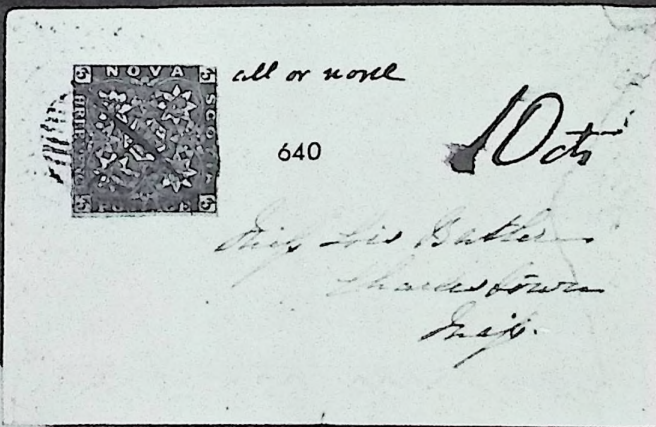 NOVA
SCOTIA
POSTAGE
all or none
640
10cts
Miss Lois Butler
Charlestown
Mass.